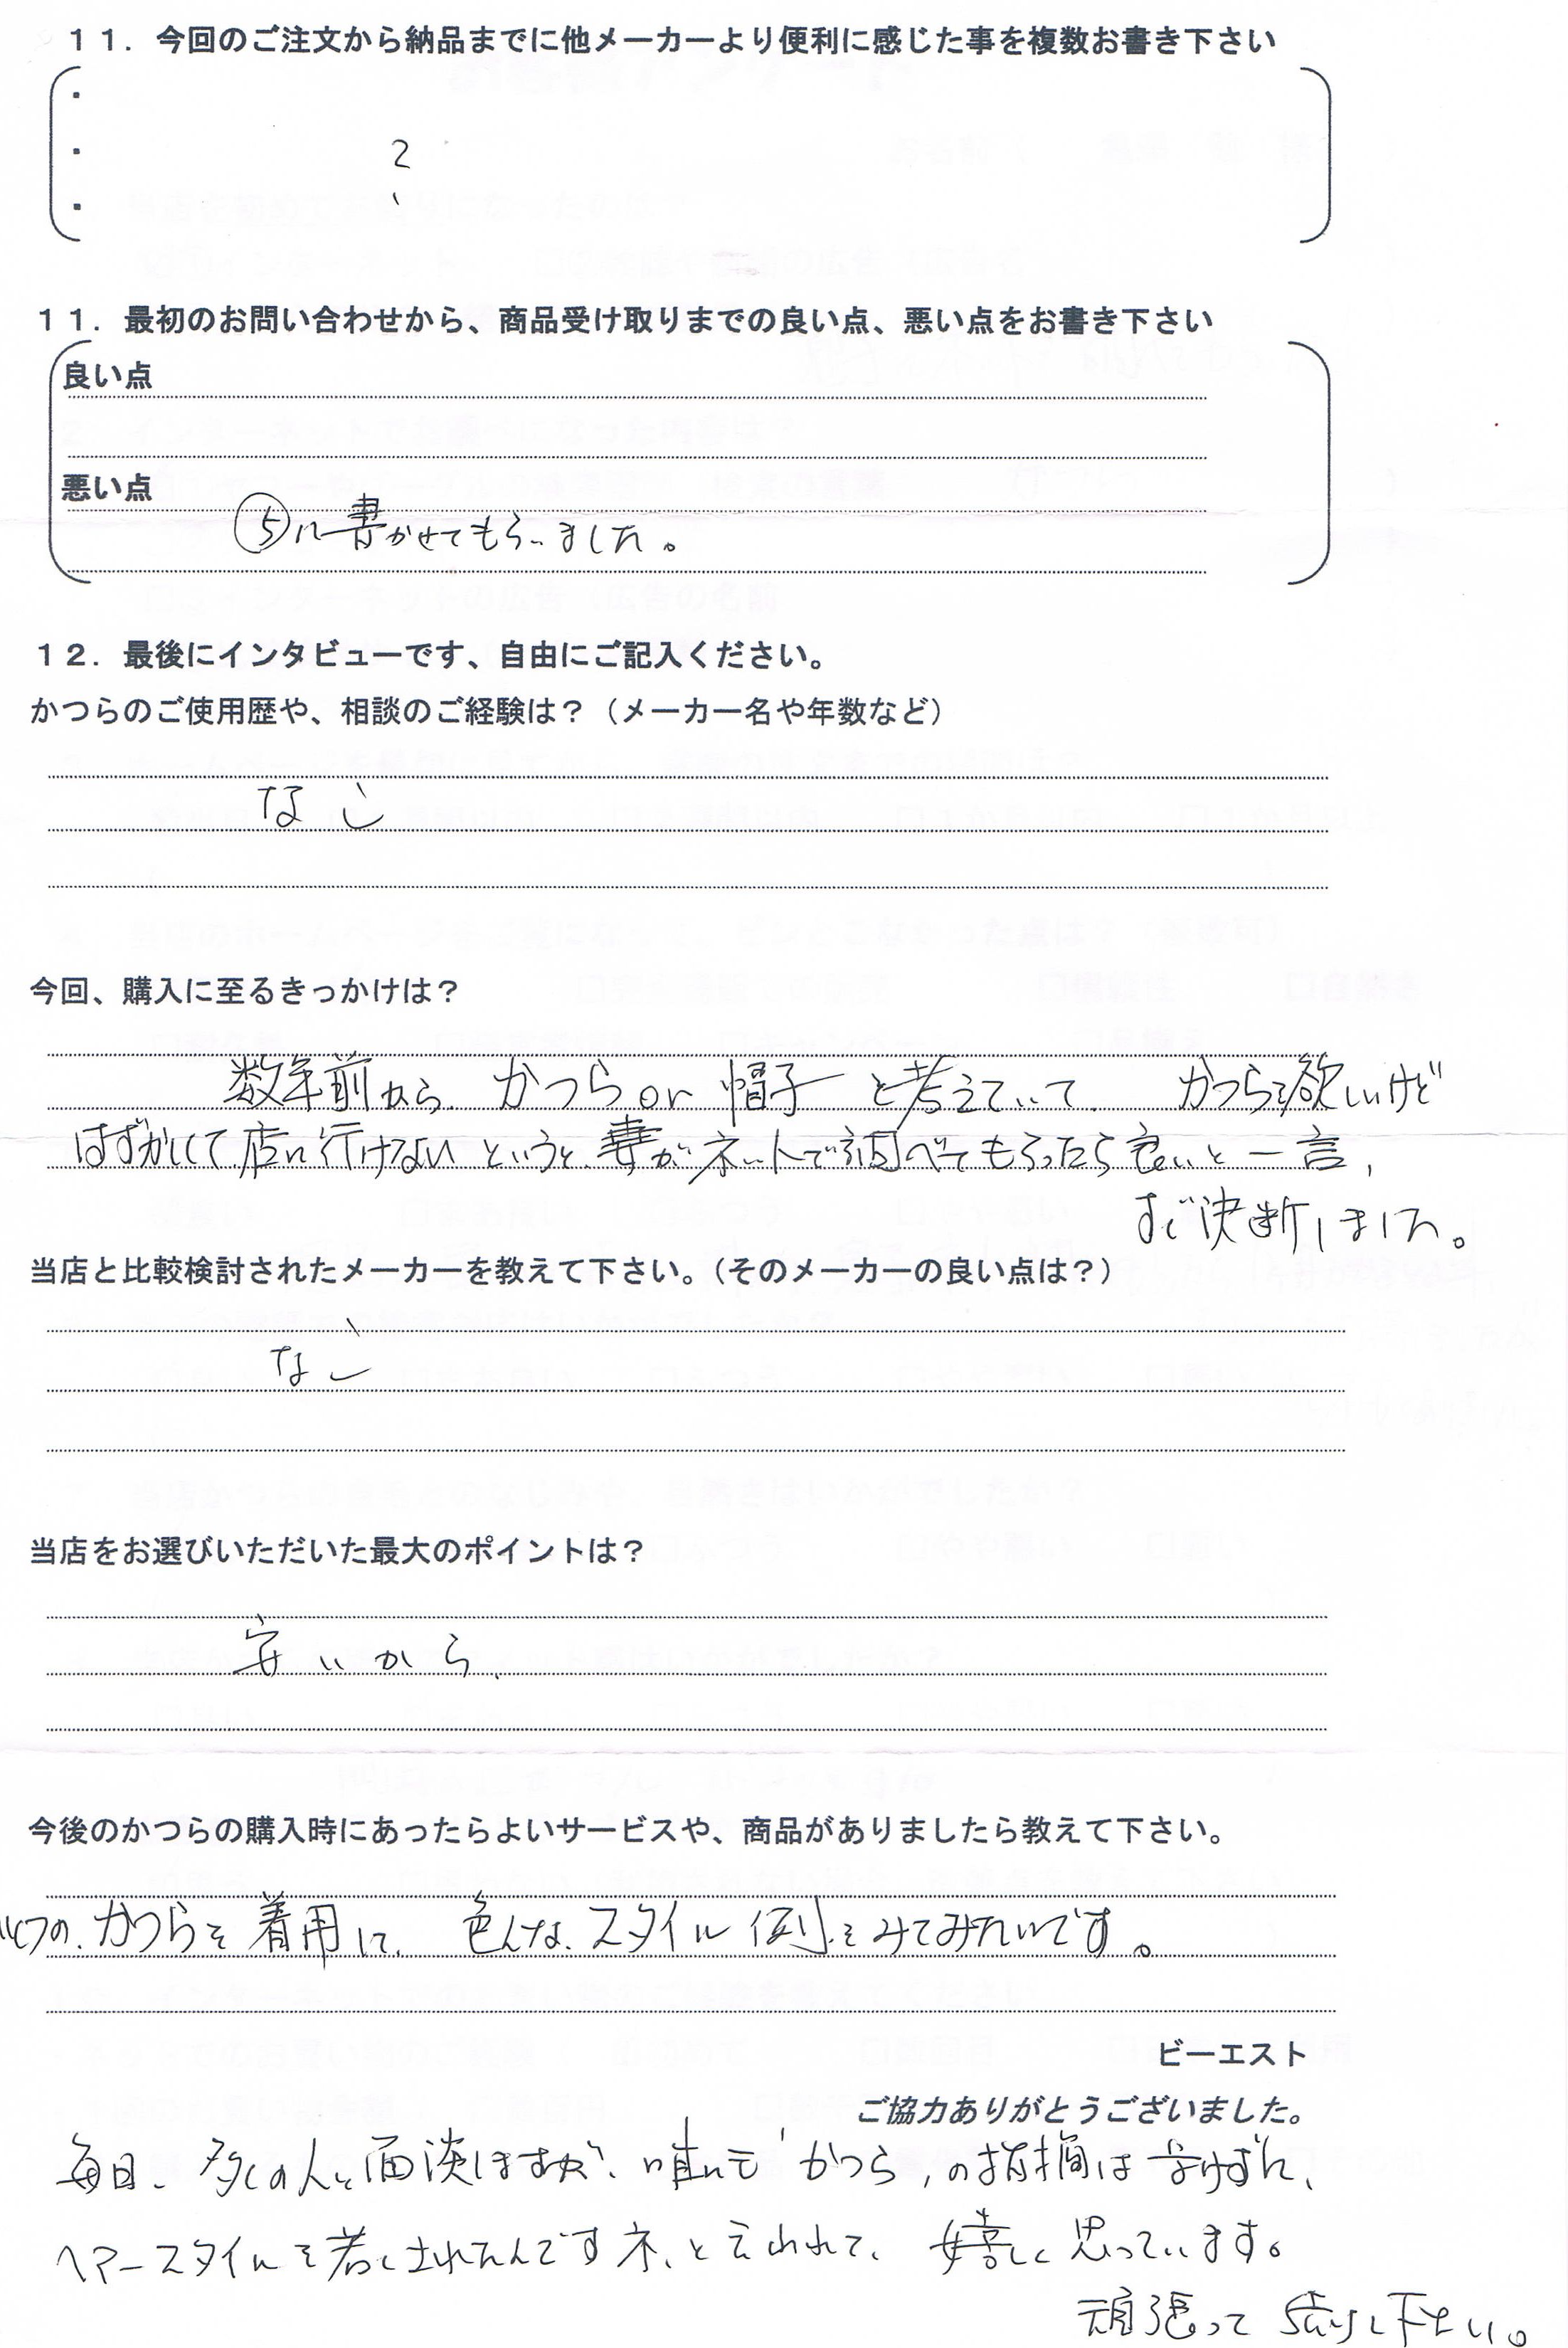 １１．今回のご注文から納品までに他メーカーより便利に感じた事を複数お書き下さい
・
・
・
？
１１．最初のお問い合わせから、商品受け取りまでの良い点、悪い点をお書き下さい
良い点
悪い点
⑤に書かせてもらいました。
１２．最後にインタビューです、自由にご記入ください。
かつらのご使用歴や、相談のご経験は？（メーカー名や年数など）
なし
今回、購入に至るきっかけは？
数年前から、かつら or 帽子 と考えていて、 かつらを欲しいけど
はずかしくて、店に行けない というと、妻がネットで調べてもらったら良いと一言、
すぐ決断しました。
当店と比較検討されたメーカーを教えて下さい。（そのメーカーの良い点は？）
なし
当店をお選びいただいた最大のポイントは？
安いから、
今後のかつらの購入時にあったらよいサービスや、商品がありましたら教えて下さい。
かつらを着用して、 色んな、スタイル例をみてみたいです。
ビーエスト
ご協力ありがとうございました。
毎日、多くの人と面談しますが、 も「かつら」の指摘は受けずに、
ヘアースタイルを若くされたんですネ、と云われて、嬉しく思っています。
頑張って 下さい。